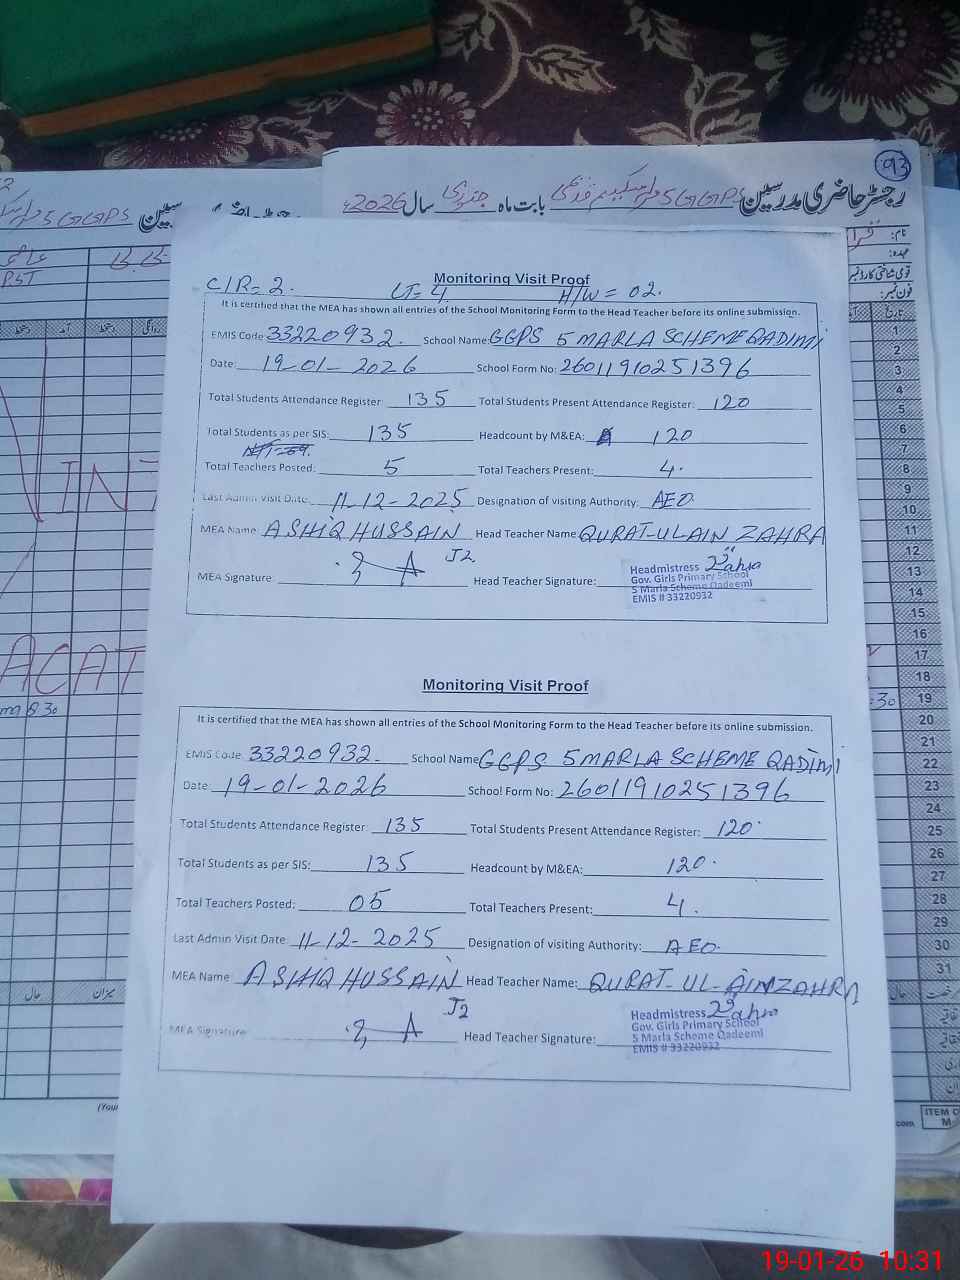 93
رجسٹر حاضری مدرسین GGPS 5 بابت ماہ جنوری سال 2026ء
نام:
عہدہ:
قومی شناختی کارڈ نمبر
فون نمبر:
PST
C/R = 2. LT = 4 H/W = 02.
Monitoring Visit Proof
It is certified that the MEA has shown all entries of the School Monitoring Form to the Head Teacher before its online submission.
EMIS Code 33220932. School Name: GGPS 5 MARLA SCHEME QADIMI
Date: 19-01-2026 School Form No: 26011910251396
Total Students Attendance Register: 135 Total Students Present Attendance Register: 120
Total Students as per SIS: 135 Headcount by M&EA: 120
Total Teachers Posted: 5 Total Teachers Present: 4.
Last Admin Visit Date 11-12-2025 Designation of visiting Authority: AEO
MEA Name: ASHIQ HUSSAIN Head Teacher Name QURAT-ULAIN ZAHRA
J2
MEA Signature: Head Teacher Signature:
Headmistress Zahra
Gov. Girls Primary School
5 Marla Scheme Qadeemi
EMIS # 33220932
Monitoring Visit Proof
It is certified that the MEA has shown all entries of the School Monitoring Form to the Head Teacher before its online submission.
EMIS Code 33220932. School Name GGPS 5 MARLA SCHEME QADIMI
Date: 19-01-2026 School Form No: 26011910251396
Total Students Attendance Register: 135 Total Students Present Attendance Register: 120
Total Students as per SIS: 135 Headcount by M&EA: 120.
Total Teachers Posted: 05 Total Teachers Present: 4.
Last Admin Visit Date: 11-12-2025 Designation of visiting Authority: AEO.
MEA Name: ASHIQ HUSSAIN Head Teacher Name: QURAT-UL-AIN ZAHRA
J2
MEA Signature: Head Teacher Signature:
Headmistress Zahra
Gov. Girls Primary School
5 Marla Scheme Qadeemi
EMIS # 33220932
تاریخ
1
2
3
4
5
6
7
8
9
10
11
12
13
14
15
16
17
18
19
20
21
22
23
24
25
26
27
28
29
30
31
WINT
ACAT
8 30
:30
حال میزان
(You
.com
ITEM C
M
19-01-26 10:31